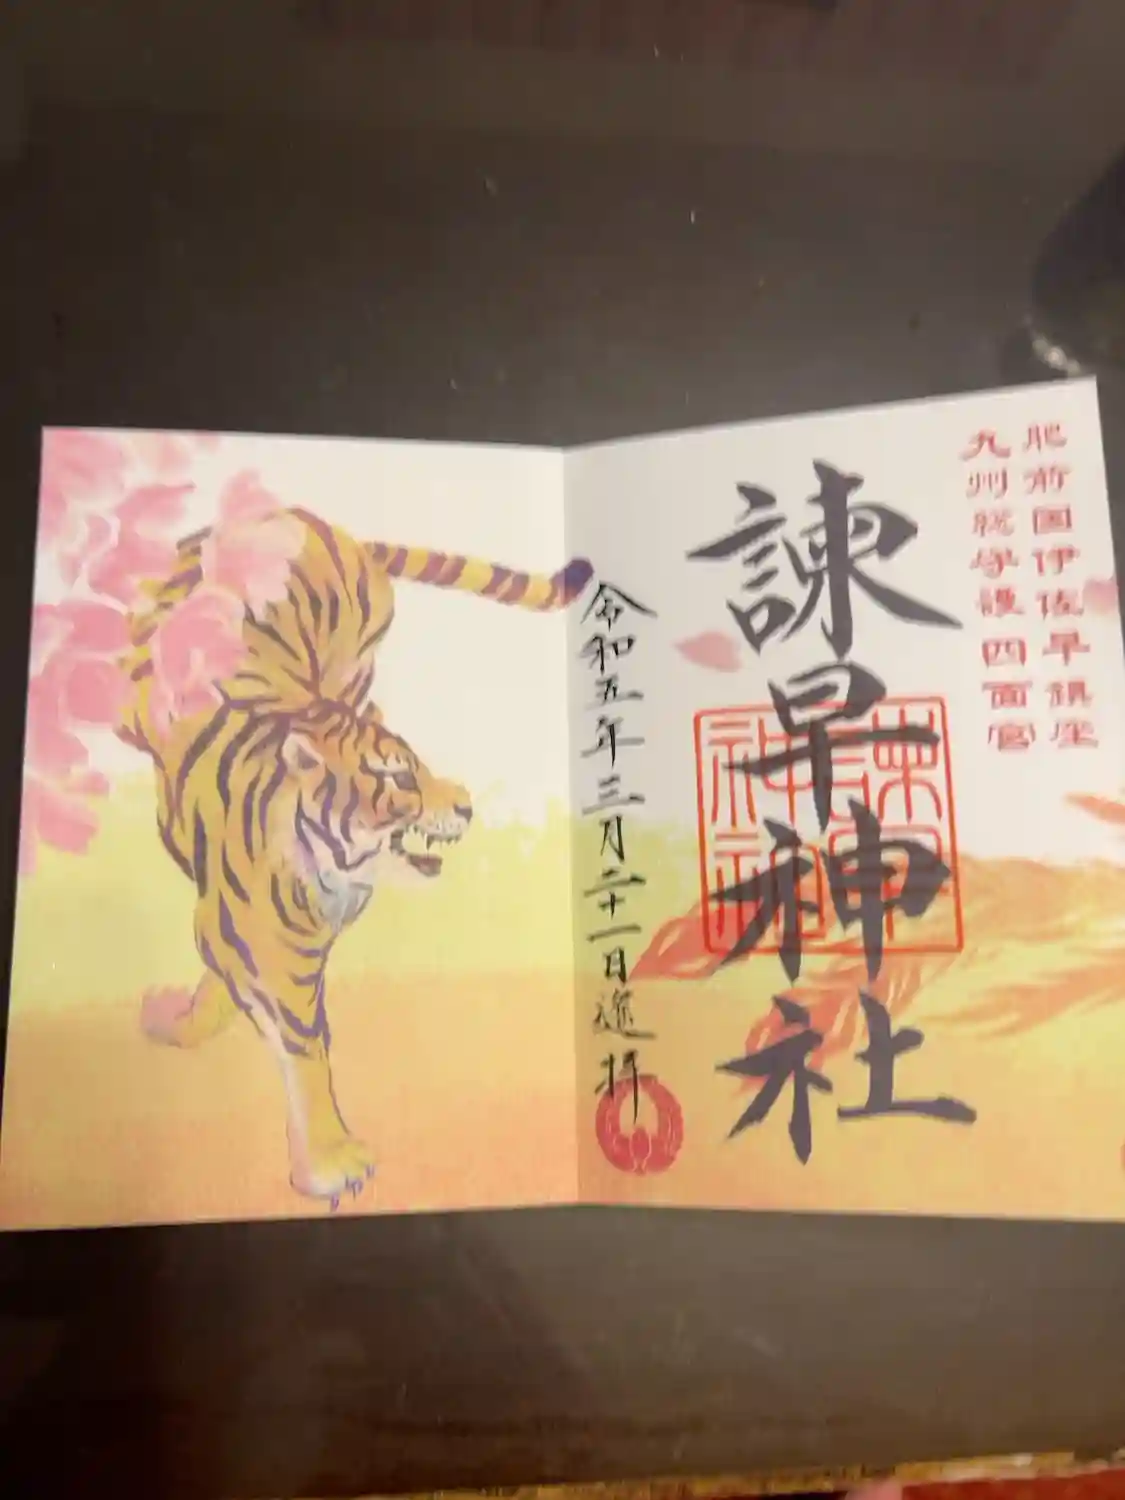 肥前国伊佐早鎮座
九州総守護四面宮
諫早神社
諫早
神社
令和五年三月二十一日遥拝